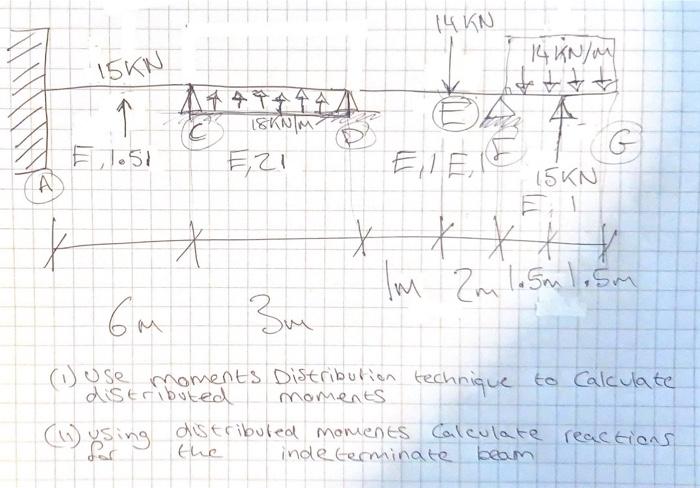 14 KN
15KN
14 KN/M
C
18KN/M
D
E
F
G
E, 1.5I
E, 2I
E, I
E, I
15KN
A
E, I
1m
2m
1.5m
1.5m
6m
3m
(i) Use moments Distribution technique to Calculate
distributed moments
(ii) using distributed moments Calculate reactions
for the indeterminate beam